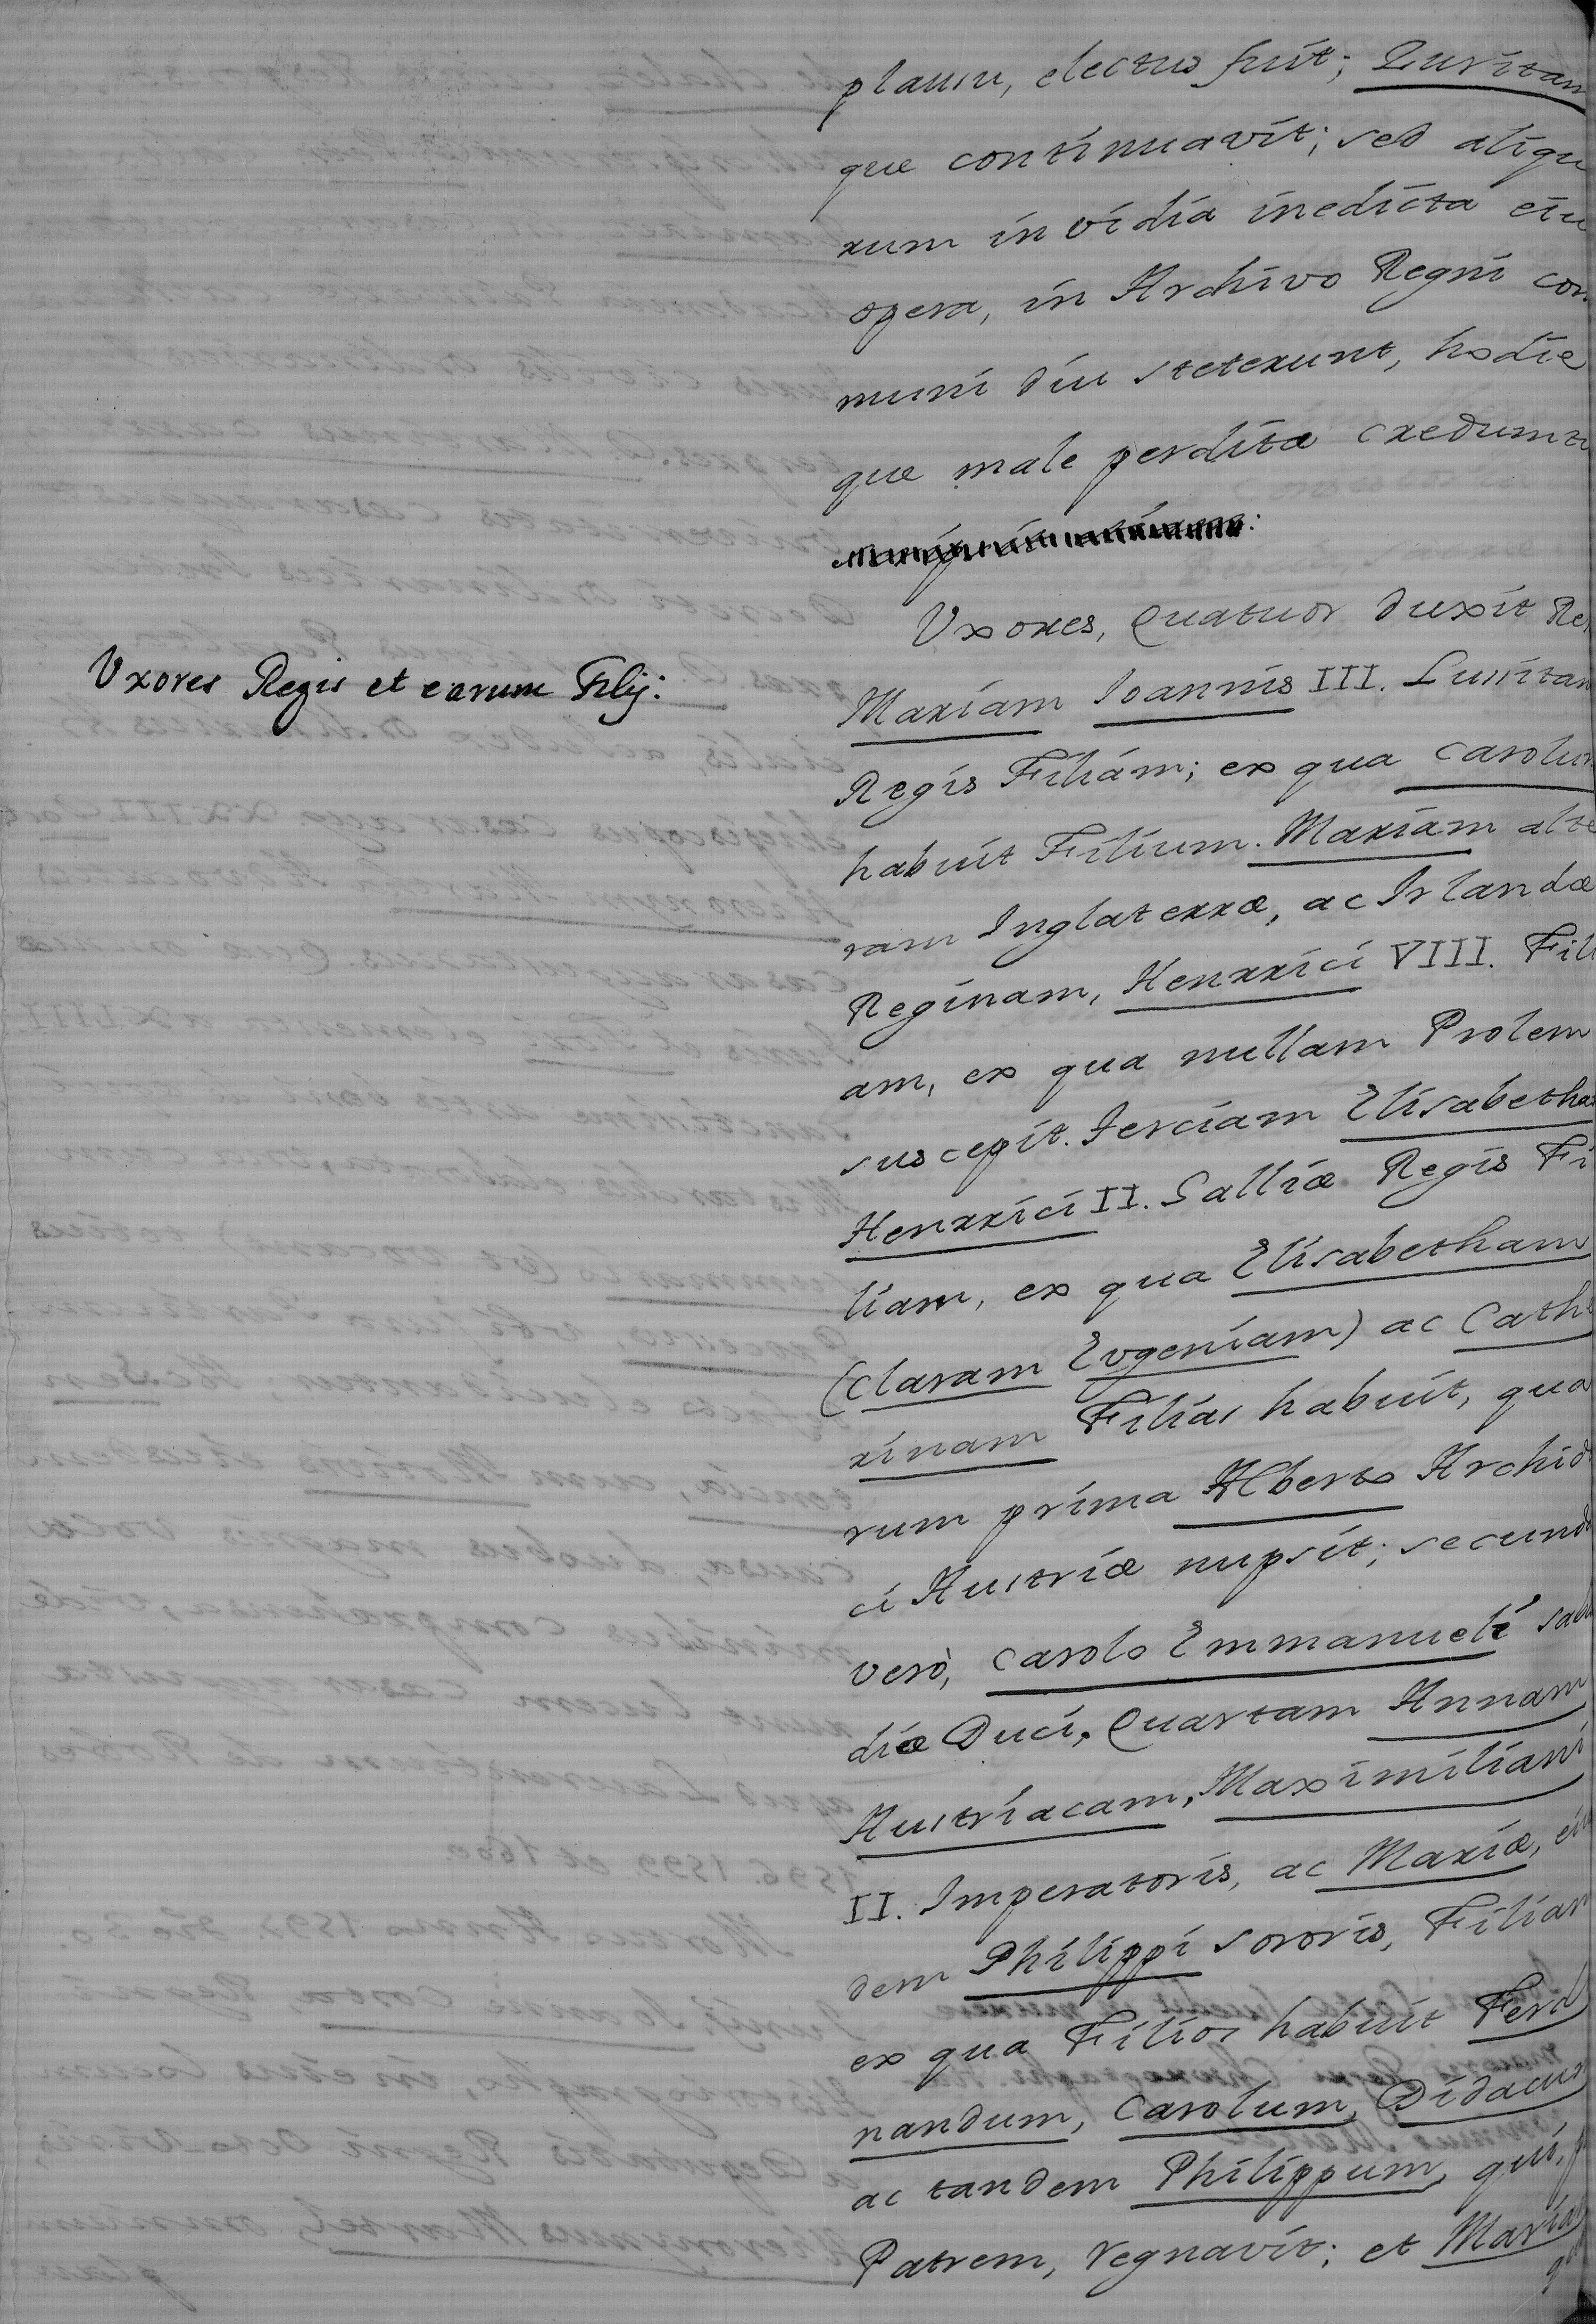 plausu, electus fuit; Zuritam
que continuavit; sed aliqu
rum invidia inedicta eiu
opera, in Archivo Regni com
muni diu steterunt, hodie
que male perdita credunt
Vxores, Quatuor duxit Re
Vxores Regis et earum Filij:
Mariam Ioannis III. Lusitan
Regis Filiám; ex qua Carolum
habuit Filium. Mariam alte
ram Inglaterræ, ac Irlandæ
Reginam, Henrrici VIII. Fili
am, ex qua nullam Prolem
suscepit. Terciam Elisabetha
Henrrici II. Galliæ Regis Fi
liam, ex qua Elisabetham
(Claram Evgeniam) ac Cathe
rinam Filias habuit, qua
rum prima Alberto Archidu
ci Austriæ nupsit; secunda
verò, Carolo Emmanueli Sabau
diæ Duci. Quartam Annam
Austriacam, Maximiliani
II. Imperatoris, ac Mariæ, eius
dem Philippi sororis, Filiam
ex qua Filios habuit Ferd
nandum, Carolum, Didacum
ac tandem Philippum, qui, p
Patrem, regnavit; et Mariam